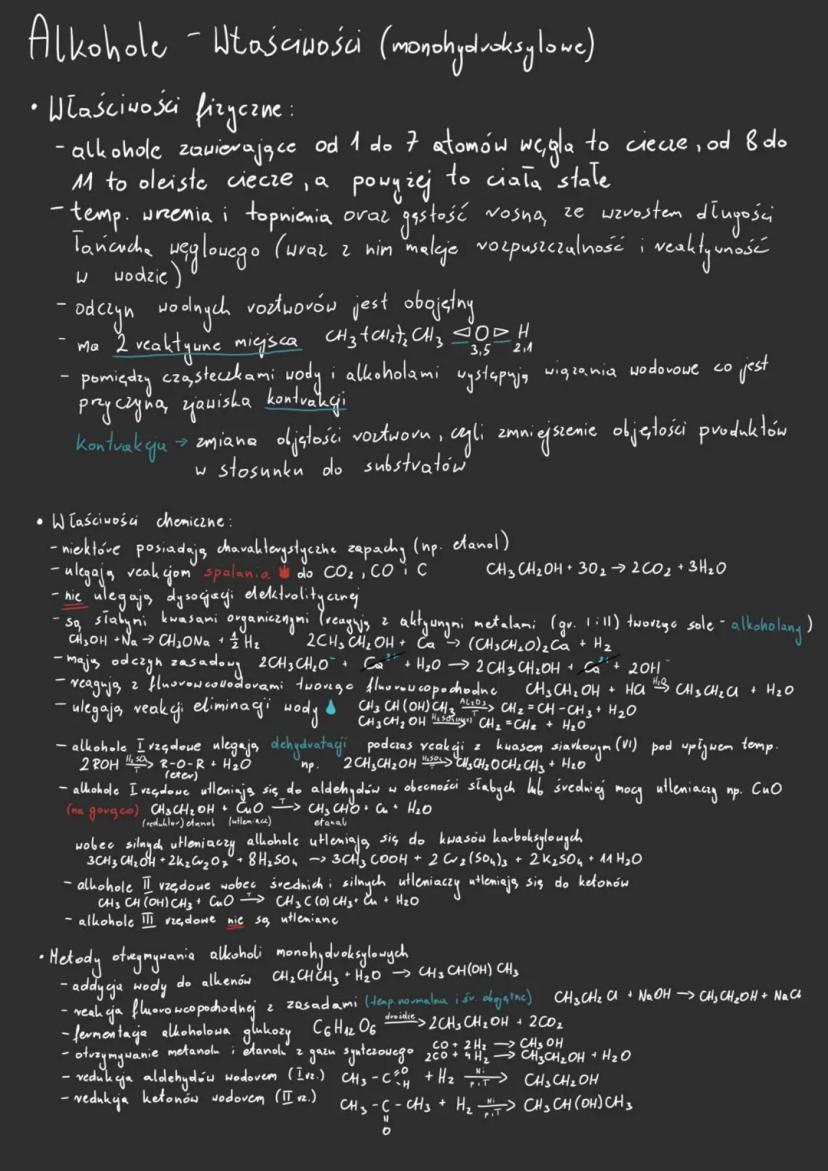 Alkohole - Właściwości (monohydroksylowe)
• Właściwości fizyczne:
- alkohole zawierające od 1 do 7 atomów węgla to ciecze, od 8 do
11 to oleiste ciecze, a powyżej to ciała stałe
- temp. wrzenia i topnienia oraz gęstość rosną ze wzrostem długości
łańcucha węglowego (wraz z nim maleje rozpuszczalność i reaktywność
w wodzie)
- odczyn wodnych roztworów jest obojętny
- ma 2 reaktywne miejsca CH3-(CH2)2 CH3 ◁O▷ H
3,5 2,1
- pomiędzy cząsteczkami wody i alkoholami występują wiązania wodorowe co jest
przyczyną zjawiska kontrakcji
kontrakcja → zmiana objętości roztworu, czyli zmniejszenie objętości produktów
w stosunku do substratów
• Właściwości chemiczne:
- niektóre posiadają charakterystyczne zapachy (np. etanol)
- ulegają reakcjom spalania do CO2, CO i C CH3CH2OH + 3O2 → 2CO2 + 3H2O
- nie ulegają dysocjacji elektrolitycznej
- są słabymi kwasami organicznymi (reagują z aktywnymi metalami (gr. I i II) tworząc sole - alkoholany)
CH3OH + Na → CH3ONa + ½ H2 2CH3CH2OH + Ca → (CH3CH2O)2Ca + H2
- mają odczyn zasadowy 2CH3CH2O⁻ + Ca²⁺ + H2O → 2CH3CH2OH + Ca²⁺ + 2OH⁻
- reagują z fluorowcowodorami tworząc fluorowcopochodne CH3CH2OH + HCl H2O→ CH3CH2Cl + H2O
- ulegają reakcji eliminacji wody CH3CH(OH)CH3 Al2O3/T→ CH2=CH-CH3 + H2O
CH3CH2OH H2SO4(stęż)→ CH2=CH2 + H2O
- alkohole I rzędowe ulegają dehydratacji podczas reakcji z kwasem siarkowym (VI) pod wpływem temp.
2ROH H2SO4→ R-O-R + H2O np. 2CH3CH2OH H2SO4→ CH3CH2OCH2CH3 + H2O
(eter)
- alkohole I rzędowe utleniają się do aldehydów w obecności słabych lub średniej mocy utleniaczy np. CuO
(na gorąco) CH3CH2OH + CuO T→ CH3CHO + Cu + H2O
(reduktor) etanol (utleniacz) etanal
wobec silnych utleniaczy alkohole utleniają się do kwasów karboksylowych
3CH3CH2OH + 2K2Cr2O7 + 8H2SO4 → 3CH3COOH + 2Cr2(SO4)3 + 2K2SO4 + 11H2O
- alkohole II rzędowe wobec średnich i silnych utleniaczy utleniają się do ketonów
CH3CH(OH)CH3 + CuO T→ CH3C(O)CH3 + Cu + H2O
- alkohole III rzędowe nie są utleniane
• Metody otrzymywania alkoholi monohydroksylowych
- addycja wody do alkenów CH2CHCH3 + H2O → CH3CH(OH)CH3
- reakcja fluorowcopochodnej z zasadami (temp. normalna i śr. obojętne) CH3CH2Cl + NaOH → CH3CH2OH + NaCl
- fermentacja alkoholowa glukozy C6H12O6 drożdże→ 2CH3CH2OH + 2CO2
- otrzymywanie metanolu i etanolu z gazu syntezowego CO + 2H2 → CH3OH
2CO + 4H2 → CH3CH2OH + H2O
- redukcja aldehydów wodorem (I rz.) CH3-C=O-H + H2 Ni/p,T→ CH3CH2OH
- redukcja ketonów wodorem (II rz.) CH3-C-CH3 + H2 Ni/p,T→ CH3CH(OH)CH3
||
O